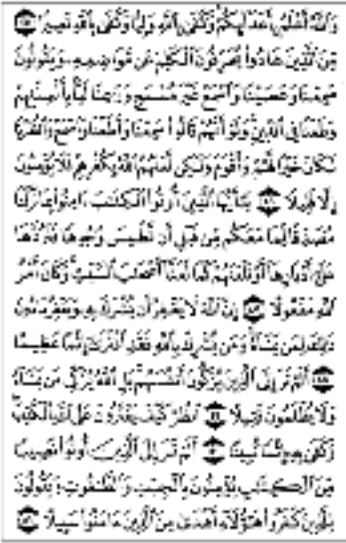 وَاللَّهُ أَعْلَمُ بِأَعْدَائِكُمْ وَكَفَىٰ بِاللَّهِ وَلِيًّا وَكَفَىٰ بِاللَّهِ نَصِيرًا ۝٤٥
مِّنَ الَّذِينَ هَادُوا يُحَرِّفُونَ الْكَلِمَ عَن مَّوَاضِعِهِ وَيَقُولُونَ
سَمِعْنَا وَعَصَيْنَا وَاسْمَعْ غَيْرَ مُسْمَعٍ وَرَاعِنَا لَيًّا بِأَلْسِنَتِهِمْ
وَطَعْنًا فِي الدِّينِ وَلَوْ أَنَّهُمْ قَالُوا سَمِعْنَا وَأَطَعْنَا وَاسْمَعْ وَانظُرْنَا
لَكَانَ خَيْرًا لَّهُمْ وَأَقْوَمَ وَلَٰكِن لَّعَنَهُمُ اللَّهُ بِكُفْرِهِمْ فَلَا يُؤْمِنُونَ
إِلَّا قَلِيلًا ۝٤٦ يَا أَيُّهَا الَّذِينَ أُوتُوا الْكِتَابَ آمِنُوا بِمَا نَزَّلْنَا
مُصَدِّقًا لِّمَا مَعَكُم مِّن قَبْلِ أَن نَّطْمِسَ وُجُوهًا فَنَرُدَّهَا
عَلَىٰ أَدْبَارِهَا أَوْ نَلْعَنَهُمْ كَمَا لَعَنَّا أَصْحَابَ السَّبْتِ وَكَانَ أَمْرُ
اللَّهِ مَفْعُولًا ۝٤٧ إِنَّ اللَّهَ لَا يَغْفِرُ أَن يُشْرَكَ بِهِ وَيَغْفِرُ مَا دُونَ
ذَٰلِكَ لِمَن يَشَاءُ وَمَن يُشْرِكْ بِاللَّهِ فَقَدِ افْتَرَىٰ إِثْمًا عَظِيمًا
۝٤٨ أَلَمْ تَرَ إِلَى الَّذِينَ يُزَكُّونَ أَنفُسَهُم بَلِ اللَّهُ يُزَكِّي مَن يَشَاءُ
وَلَا يُظْلَمُونَ فَتِيلًا ۝٤٩ انظُرْ كَيْفَ يَفْتَرُونَ عَلَى اللَّهِ الْكَذِبَ
وَكَفَىٰ بِهِ إِثْمًا مُّبِينًا ۝٥٠ أَلَمْ تَرَ إِلَى الَّذِينَ أُوتُوا نَصِيبًا
مِّنَ الْكِتَابِ يُؤْمِنُونَ بِالْجِبْتِ وَالطَّاغُوتِ وَيَقُولُونَ
لِلَّذِينَ كَفَرُوا هَٰؤُلَاءِ أَهْدَىٰ مِنَ الَّذِينَ آمَنُوا سَبِيلًا ۝٥١